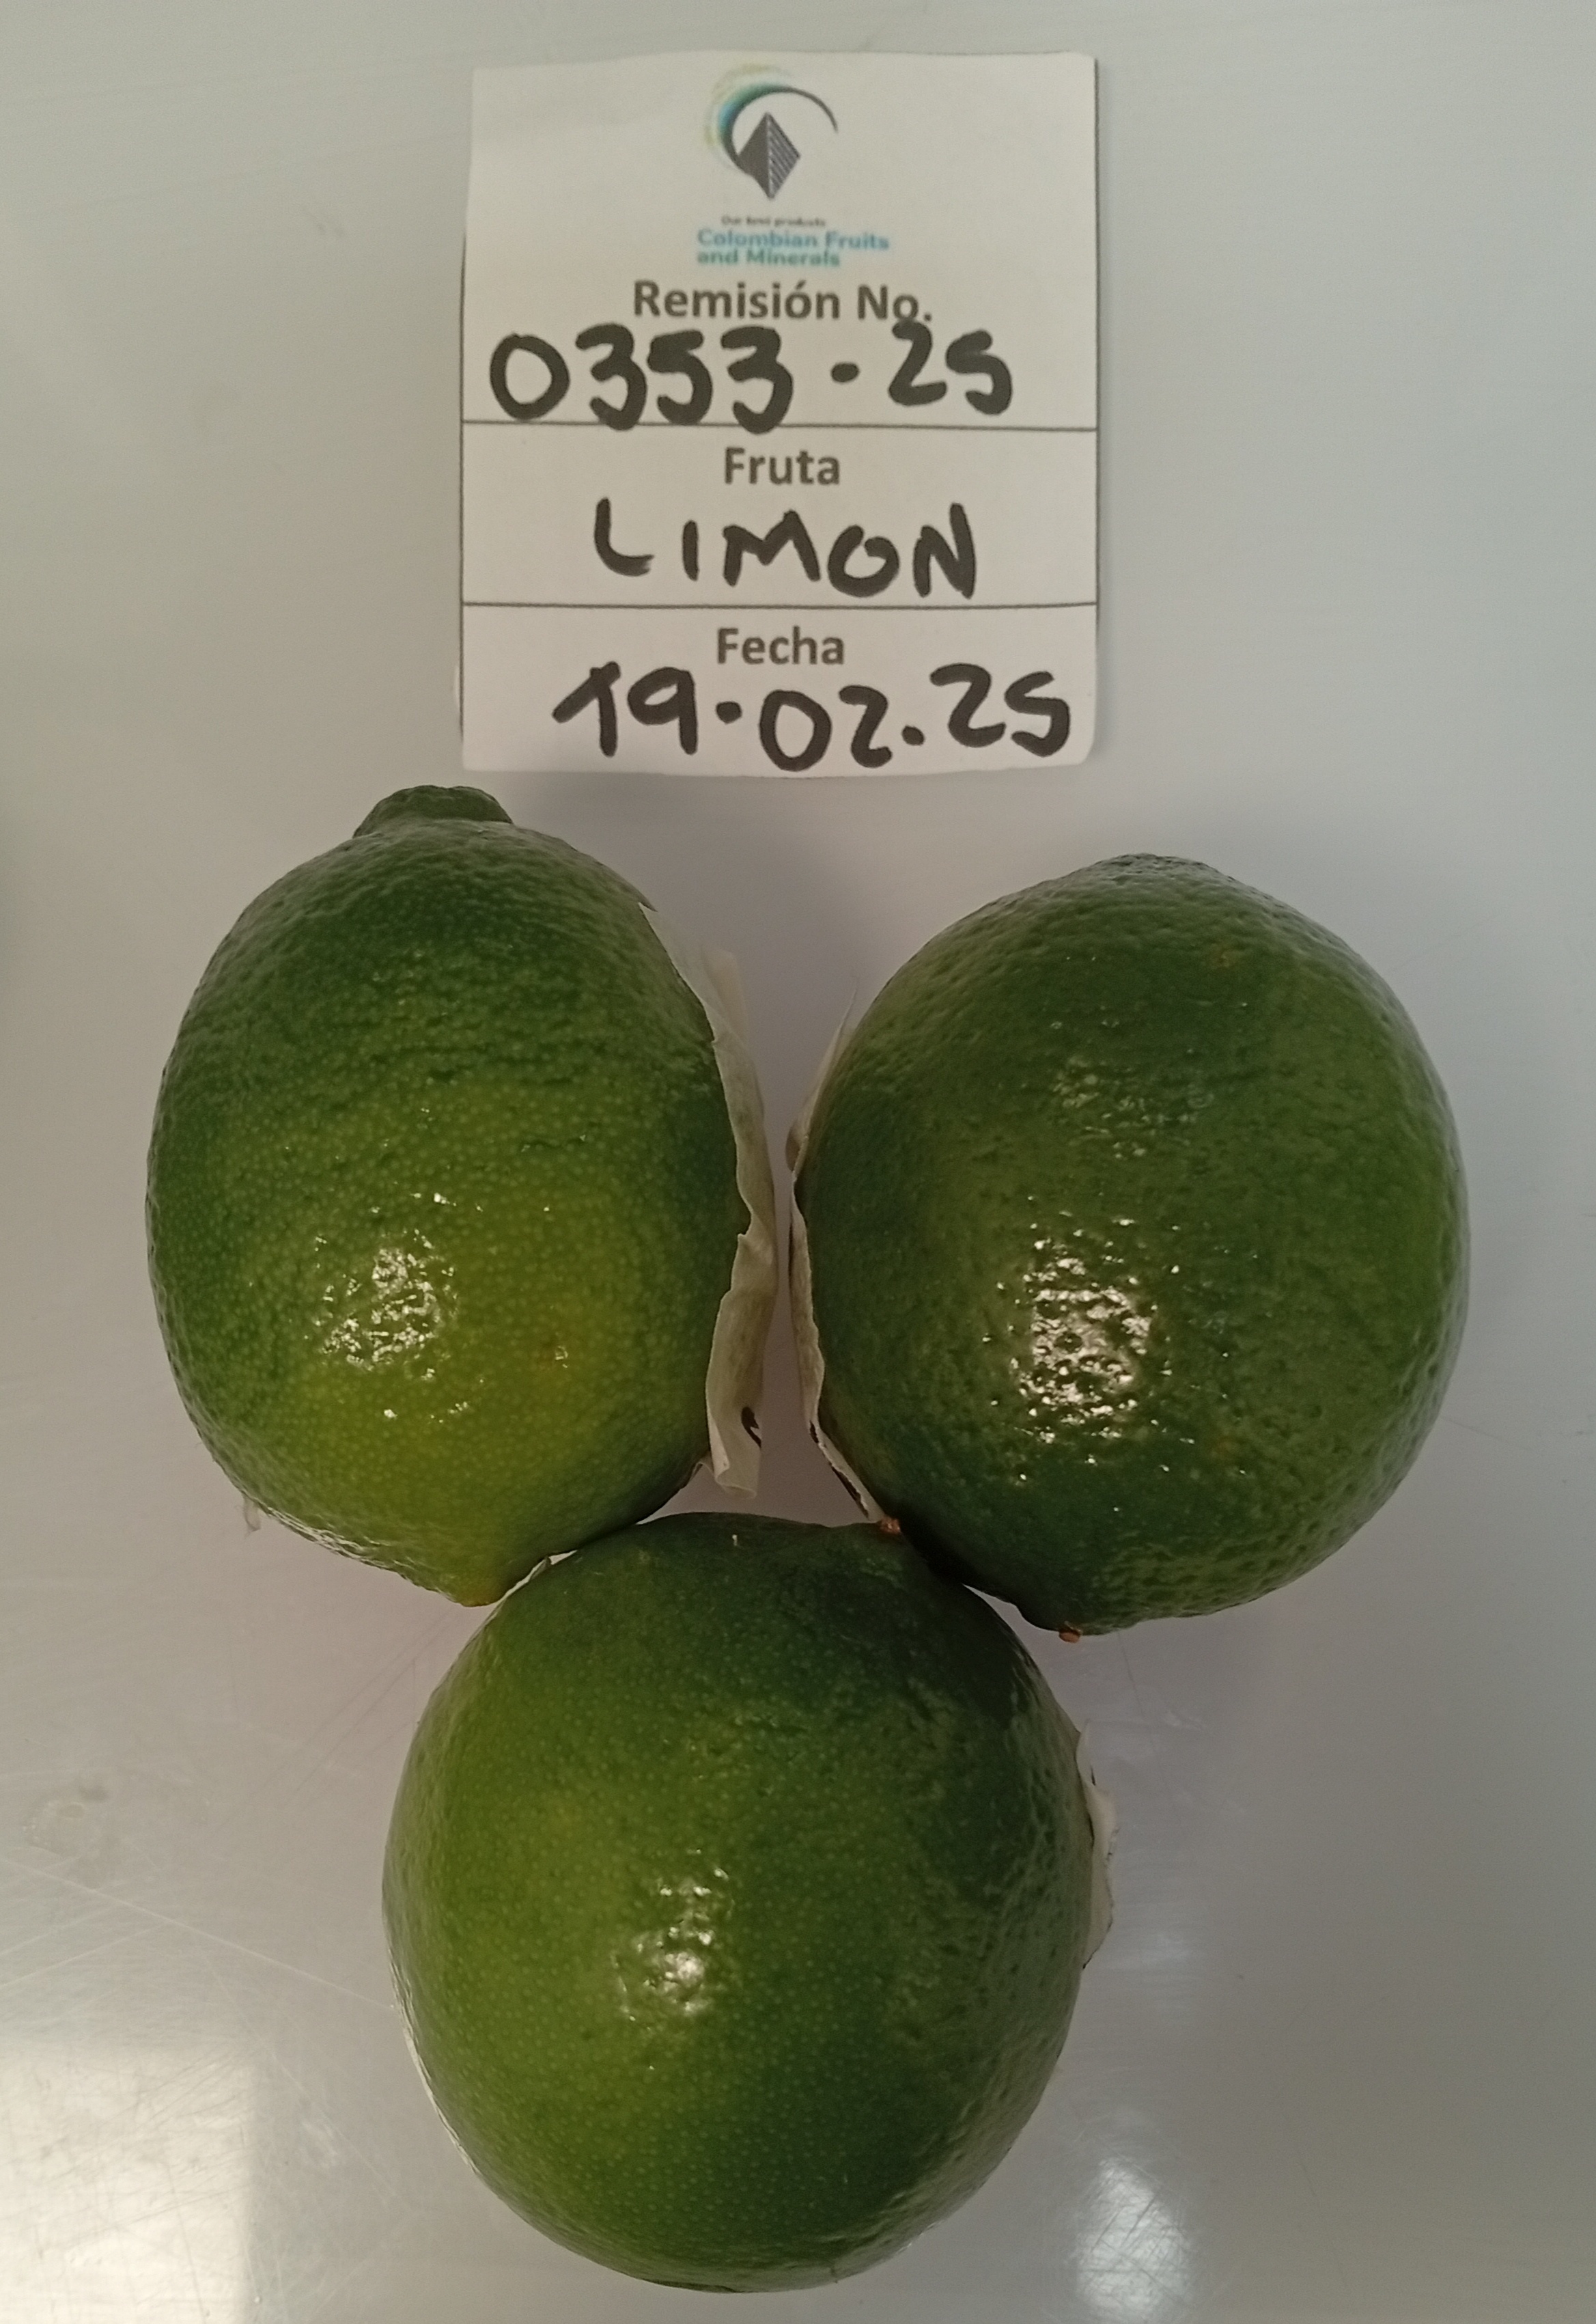 Our best products
Colombian Fruits
and Minerals
Remisión No.
0353-25
Fruta
LIMON
Fecha
19.02.25